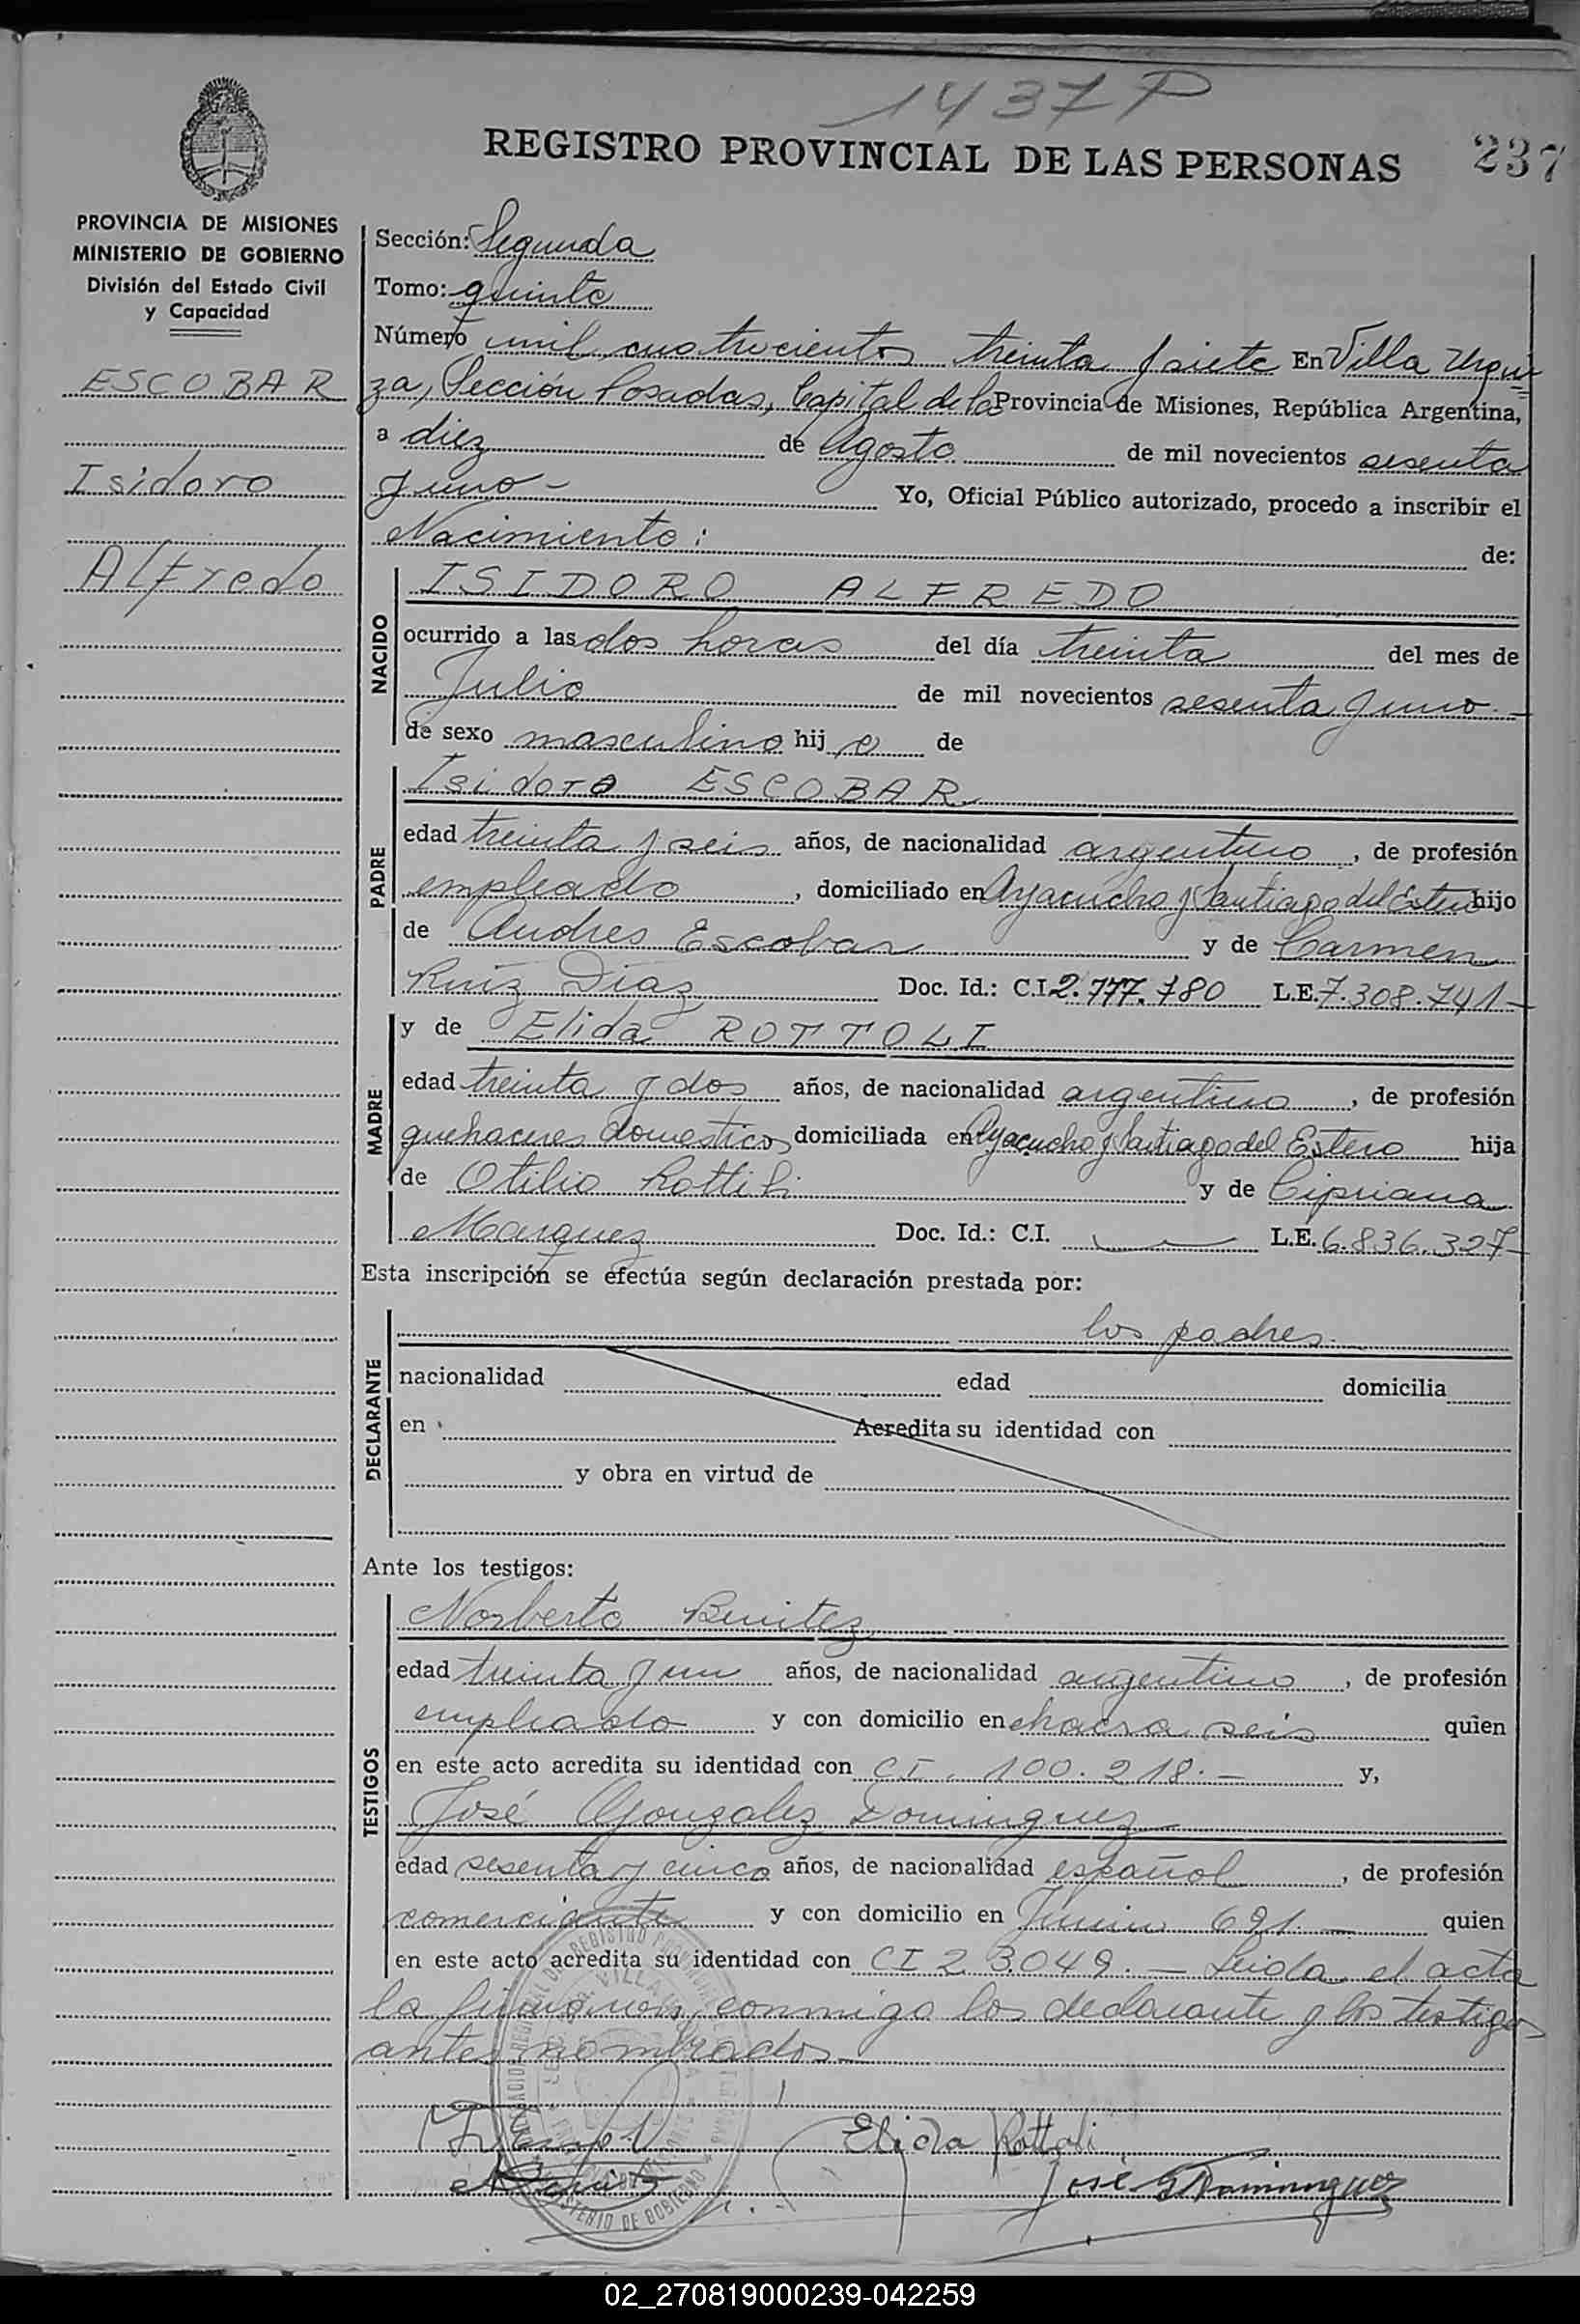 1437 P
REGISTRO PROVINCIAL DE LAS PERSONAS
237
PROVINCIA DE MISIONES
MINISTERIO DE GOBIERNO
División del Estado Civil
y Capacidad
ESCOBAR
Isidoro
Alfredo
Sección: Segunda
Tomo: quinto
Número mil cuatrocientos treinta y siete En Villa Urqui=
za, Sección Posadas, Capital de la Provincia de Misiones, República Argentina,
a diez de Agosto de mil novecientos sesenta
y uno - Yo, Oficial Público autorizado, procedo a inscribir el
Nacimiento: de:
NACIDO
ISIDORO ALFREDO
ocurrido a las dos horas del día treinta del mes de
Julio de mil novecientos sesenta y uno.-
de sexo masculino hij o de
PADRE
Isidoro ESCOBAR
edad treinta y seis años, de nacionalidad argentino, de profesión
empleado, domiciliado en Ayacucho y Santiago del Estero hijo
de Andres Escobar y de Carmen
Ruíz Díaz Doc. Id.: C.I. 2.777.780 L.E. 7.308.741-
MADRE
y de Elida ROTTOLI
edad treinta y dos años, de nacionalidad argentina, de profesión
quehaceres domesticos domiciliada en Ayacucho y Santiago del Estero hija
de Otilio Rottoli y de Cipriana
Marquez Doc. Id.: C.I. — L.E. 6.836.327-
Esta inscripción se efectúa según declaración prestada por:
DECLARANTE
los padres.
nacionalidad edad domicilia
en Acredita su identidad con
y obra en virtud de
Ante los testigos:
TESTIGOS
Norberto Benitez
edad treinta y un años, de nacionalidad argentino, de profesión
empleado y con domicilio en chacra seis quien
en este acto acredita su identidad con CI. 100.218.- y,
José Gonzalez Dominguez
edad sesenta y cinco años, de nacionalidad español, de profesión
comerciante y con domicilio en Junin 691.- quien
en este acto acredita su identidad con CI 23.049.- Leida el acta
la firman conmigo los declarante y los testigos
antes nombrados.-
Elida Rottoli
José G Dominguez
02_270819000239-042259